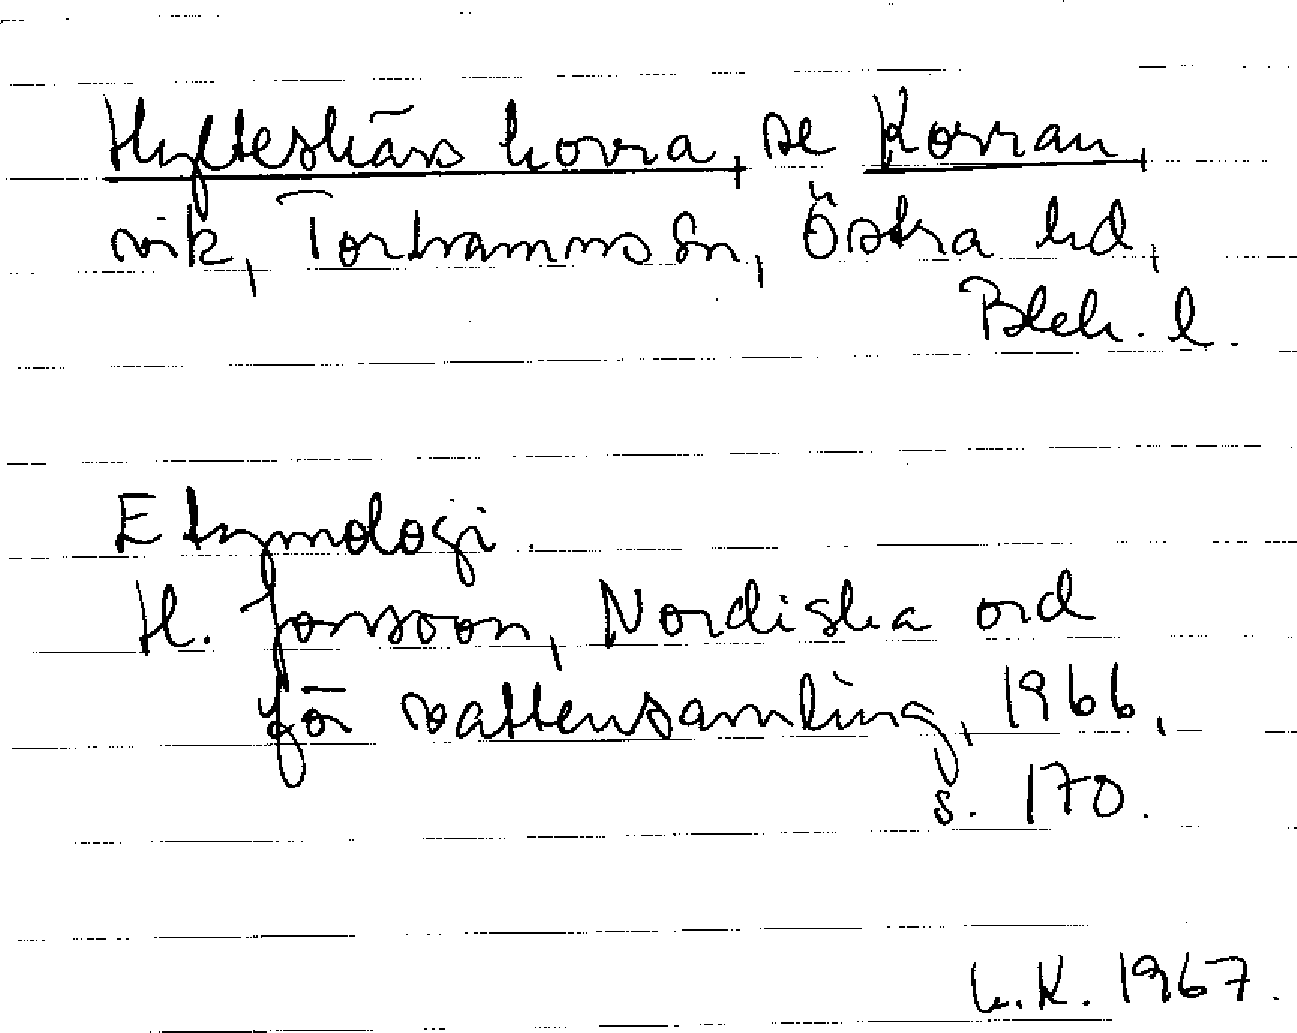 Hylteskärs kovra, se Kovran,
vik, Torhamns sn, Östra hd,
Blek. l.
Etymologi.
H. Jonsson, Nordiska ord
för vattensamling, 1966,
s. 170.
K. 1967.